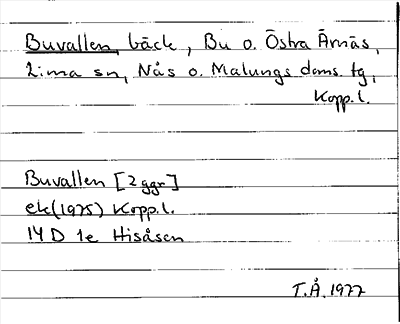 Buvallen, bäck, Bu o. Östra Ärnäs,
Lima sn, Nås o. Malungs doms. tg,
Kopp.l.
Buvallen [2 ggr]
ek(1975) Kopp.l.
14 D 1e Hisåsen
T.Å. 1977